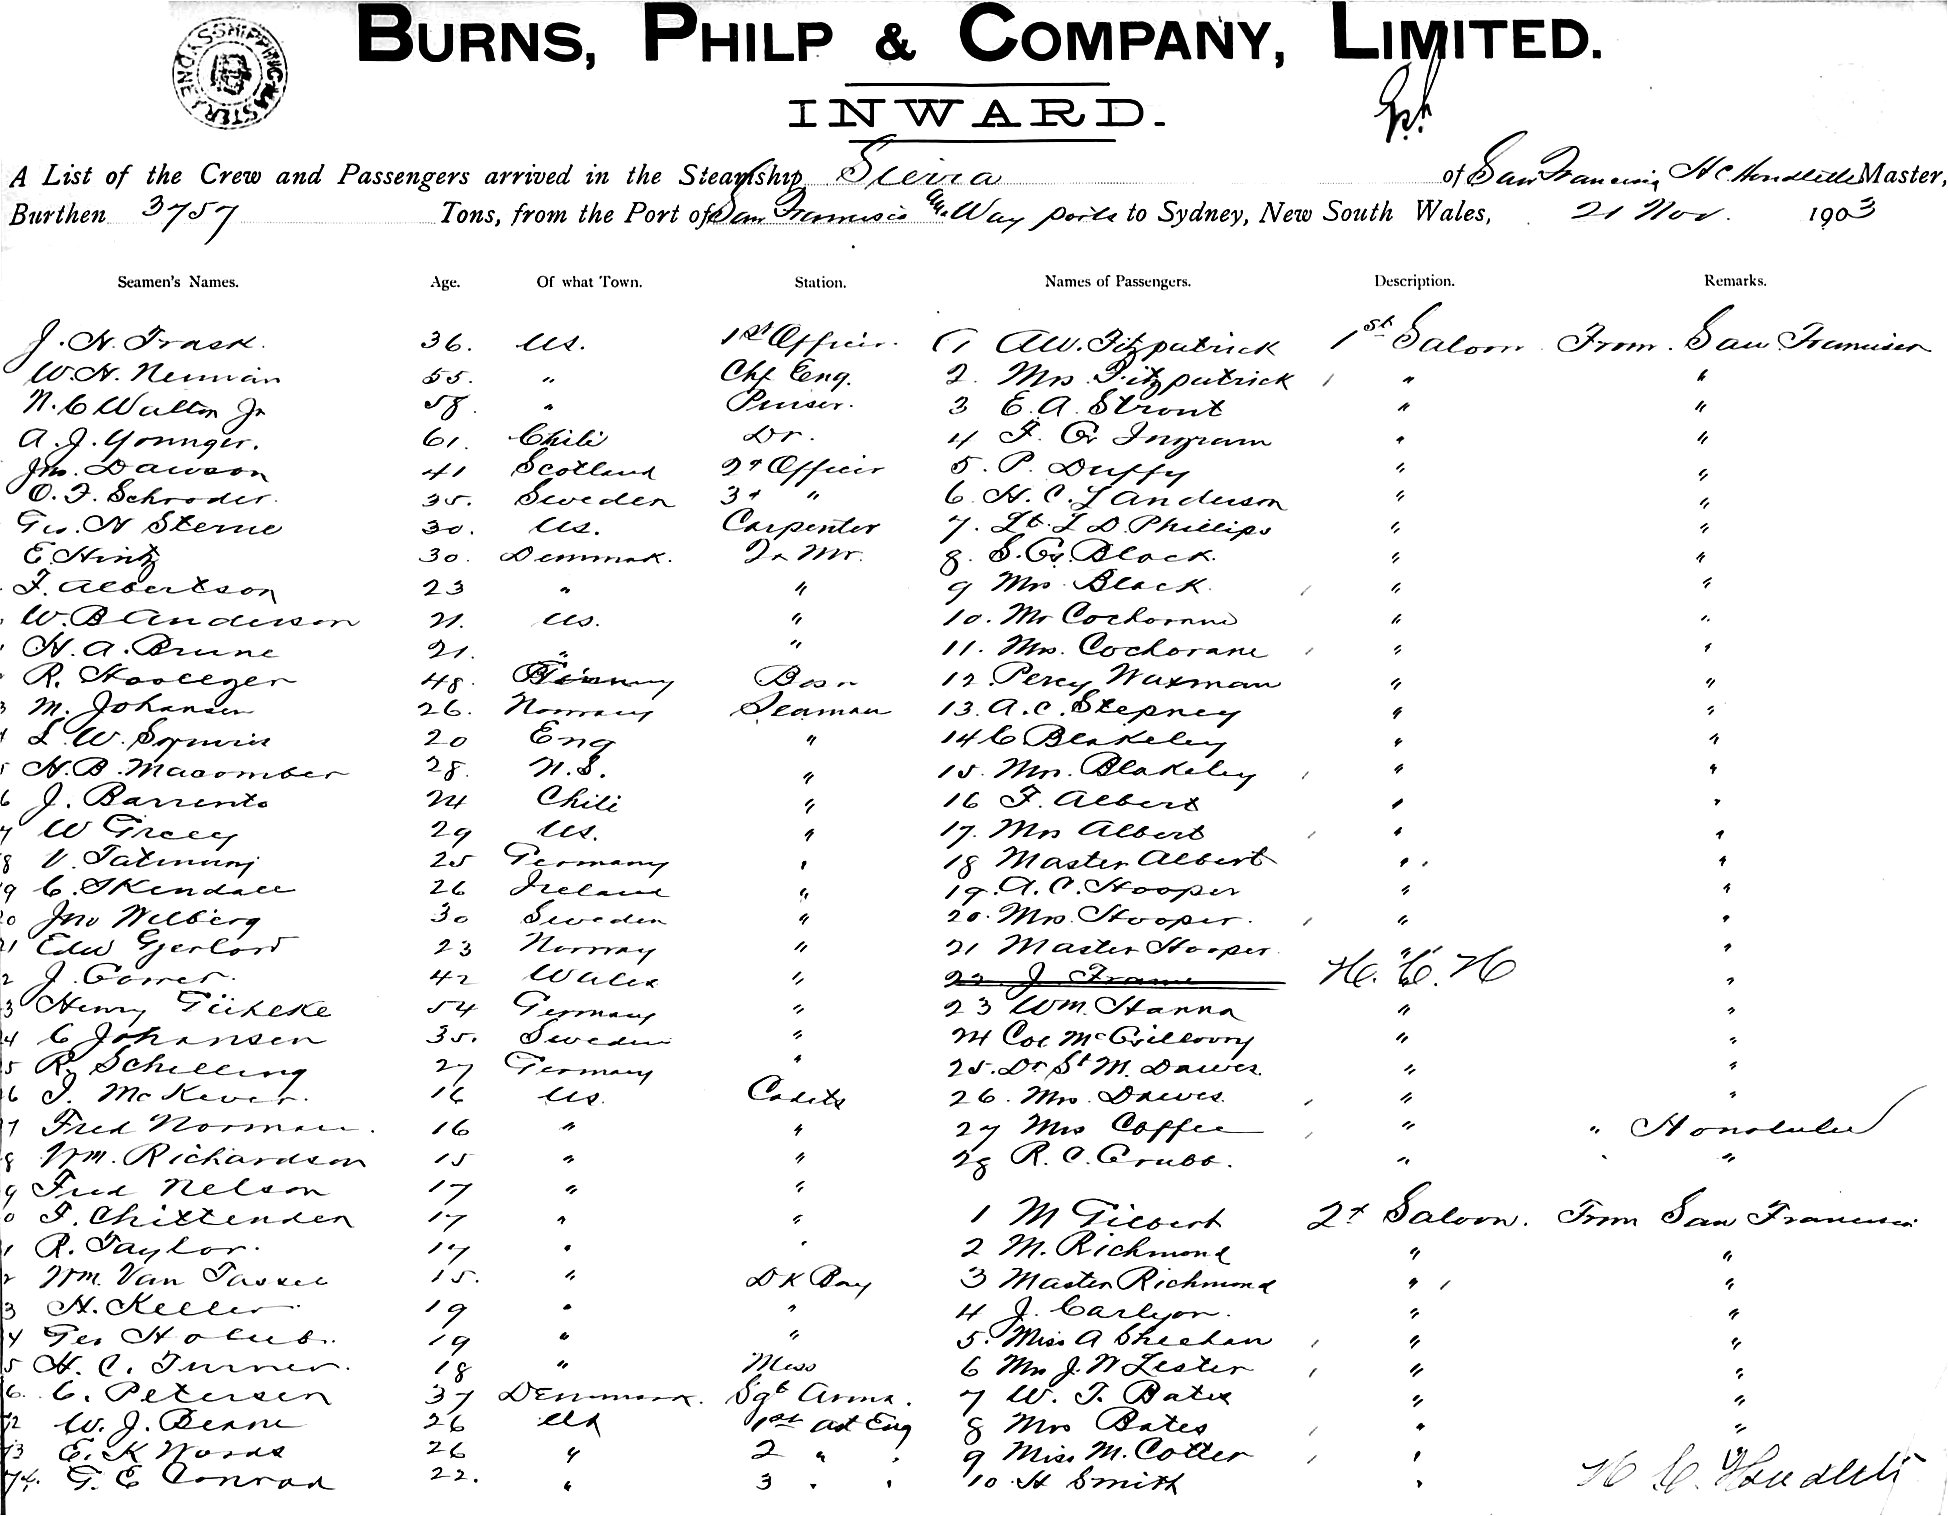 SYDNEY SHIPPING MASTER
BURNS, PHILP & COMPANY, LIMITED.
INWARD.
A List of the Crew and Passengers arrived in the Steamship Sierra of San Francisco H C Houdlette Master,
Burthen 3757 Tons, from the Port of San Francisco & Way ports to Sydney, New South Wales, 21 Nov. 1903
Seamen's Names. Age. Of what Town. Station. Names of Passengers. Description. Remarks.
J. H. Trask. 36. US. 1st Officer. 1 AW. Fitzpatrick 1st Saloon From San Francisco
W. H. Neuman 55. " Chf Eng. 2. Mrs Fitzpatrick " "
N. C Walton Jr 58. " Purser. 3 E. A. Stront " "
A. J. Younger. 61. Chili Dr. 4 F. G Ingram " "
Jno. Dawson 41 Scotland 2d Officer 5. P. Duffy " "
O. F. Schroder. 35. Sweden 3d " 6 H. C. L Anderson " "
Geo. N Sterne 30. US. Carpenter 7. Lt. L D. Phillips " "
E. Hintz 30. Denmark. Qr Mr. 8. S. G. Black. " "
F. Albertson 23 " " 9 Mrs Black. " "
W. B Anderson 21. US. " 10. Mr Cochorane " "
H. A. Brune 21. " " 11. Mrs. Cochorane " "
R. Hooleger 48. Bosn 12 Percy Waxman " "
M. Johansen 26. Norway Seaman 13. A. C. Stepney " "
L. W. 20 Eng " 14 C Blakeley " "
H. B. Macomber 28. N.S. " 15. Mrs. Blakeley " "
6 J. Barrento 24 Chili " 16 F. Albert " "
W Greey 29 US. " 17. Mrs Albert " "
8 V. 25 Germany " 18 Master Albert " "
9 C. Skendall 26 Ireland " 19. A. C. Hooper " "
0 Jno Welberg 30 Sweden " 20. Mrs. Hooper. " "
1 Edw Gjerlow 23 Norway " 21 Master Hooper. " "
2 J. Gorrel. 42 Wales " 22 J. Frame H. C. H "
3 Henry 54 Germany " 23 Wm. Hanna " "
4 C Johansen 35. Sweden " 24 Col McGillovry " "
5 R. Schilling 27 Germany " 25. Dr St M. Dawes. " "
6 J. McKever. 16 US. Cadets 26. Mrs. Dawes. " "
7 Fred Norman. 16 " " 27 Mrs Coffee " " Honolulu
8 Wm. Richardson 15 " " 28 R. C. Grubb. " " "
9 Fred Nelson 17 " "
0 F. Chittenden 17 " " 1 M Gilbert 2d Saloon. From San Francisco
1 R. Taylor. 17 " " 2 M. Richmond " "
2 Wm. Van Tassel 15. " Dk Boy 3 Master Richmond " "
3 H. Keller 19 " " 4 J. Carlyon. " "
4 Geo Holub. 19 " " 5. Miss A Sheehan " "
5 H. C. Turner. 18 " Mess 6 Mrs J. W Lester " "
6. C. Petersen 37 Denmark. Sgt Arms. 7 W. T. Bates " "
72 W. J. Beane 26 US 1st ast Eng 8 Mrs Bates " "
73 E. K Woods 26 " 2 " " 9 Miss M. Cotter " "
74. G. E Conrad 22. " 3 " " 10 H Smith " H C. Houdlette